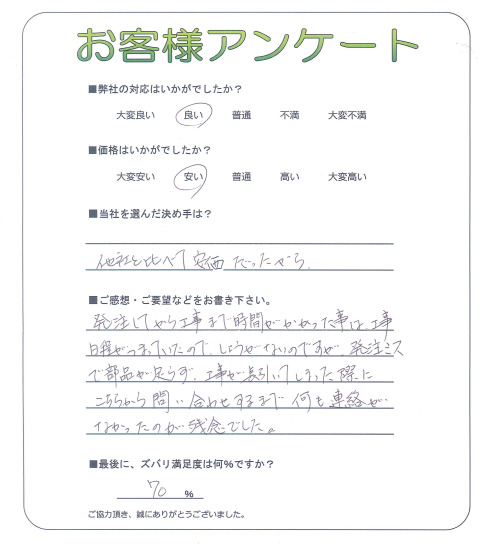 お客様アンケート
■弊社の対応はいかがでしたか?
大変良い 良い 普通 不満 大変不満
■価格はいかがでしたか?
大変安い 安い 普通 高い 大変高い
■当社を選んだ決め手は?
他社と比べて安価だったから。
■ご感想・ご要望などをお書き下さい。
発注してから工事まで時間がかかった事は、工事
日程がつまっていたので、しょうがないのですが、発注ミス
で部品が足らず、工事が長引いてしまった際に
こちらから問い合わせするまで何も連絡が
なかったのが残念でした。
■最後に、ズバリ満足度は何%ですか?
70 %
ご協力頂き、誠にありがとうございました。